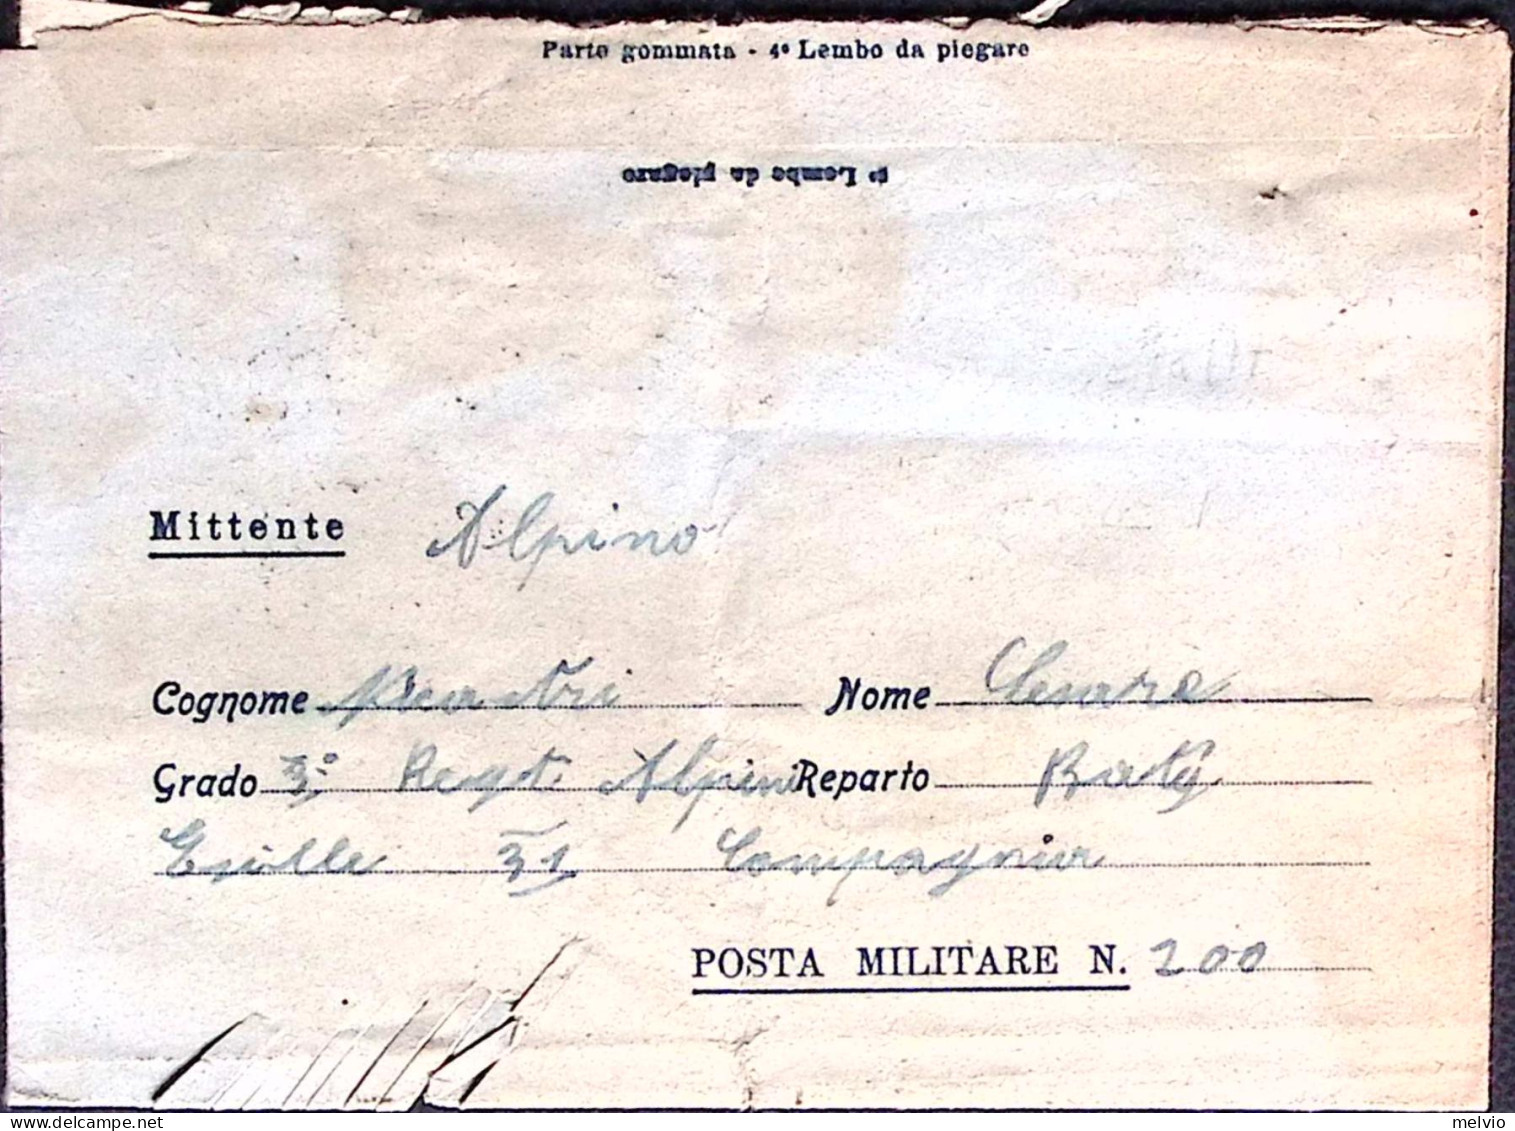 Parte gommata - 4° Lembo da piegare
Lembo da piegare
Mittente Alpino
Cognome Nome Cesare
Grado 3° Regt. Alpini Reparto Batg
Exille 31 Compagnia
POSTA MILITARE N. 200
melvio